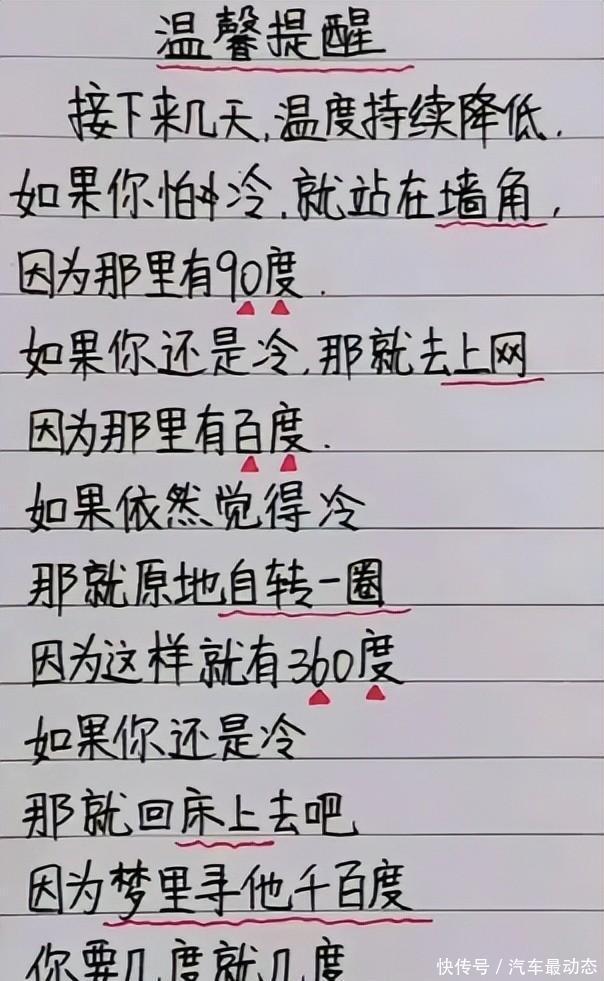 温馨提醒
接下来几天,温度持续降低.
如果你怕冷,就站在墙角,
因为那里有90度.
如果你还是冷,那就去上网
因为那里有百度.
如果依然觉得冷
那就原地自转一圈
因为这样就有360度
如果你还是冷
那就回床上去吧
因为梦里寻他千百度
你要几度就几度
快传号/汽车最动态